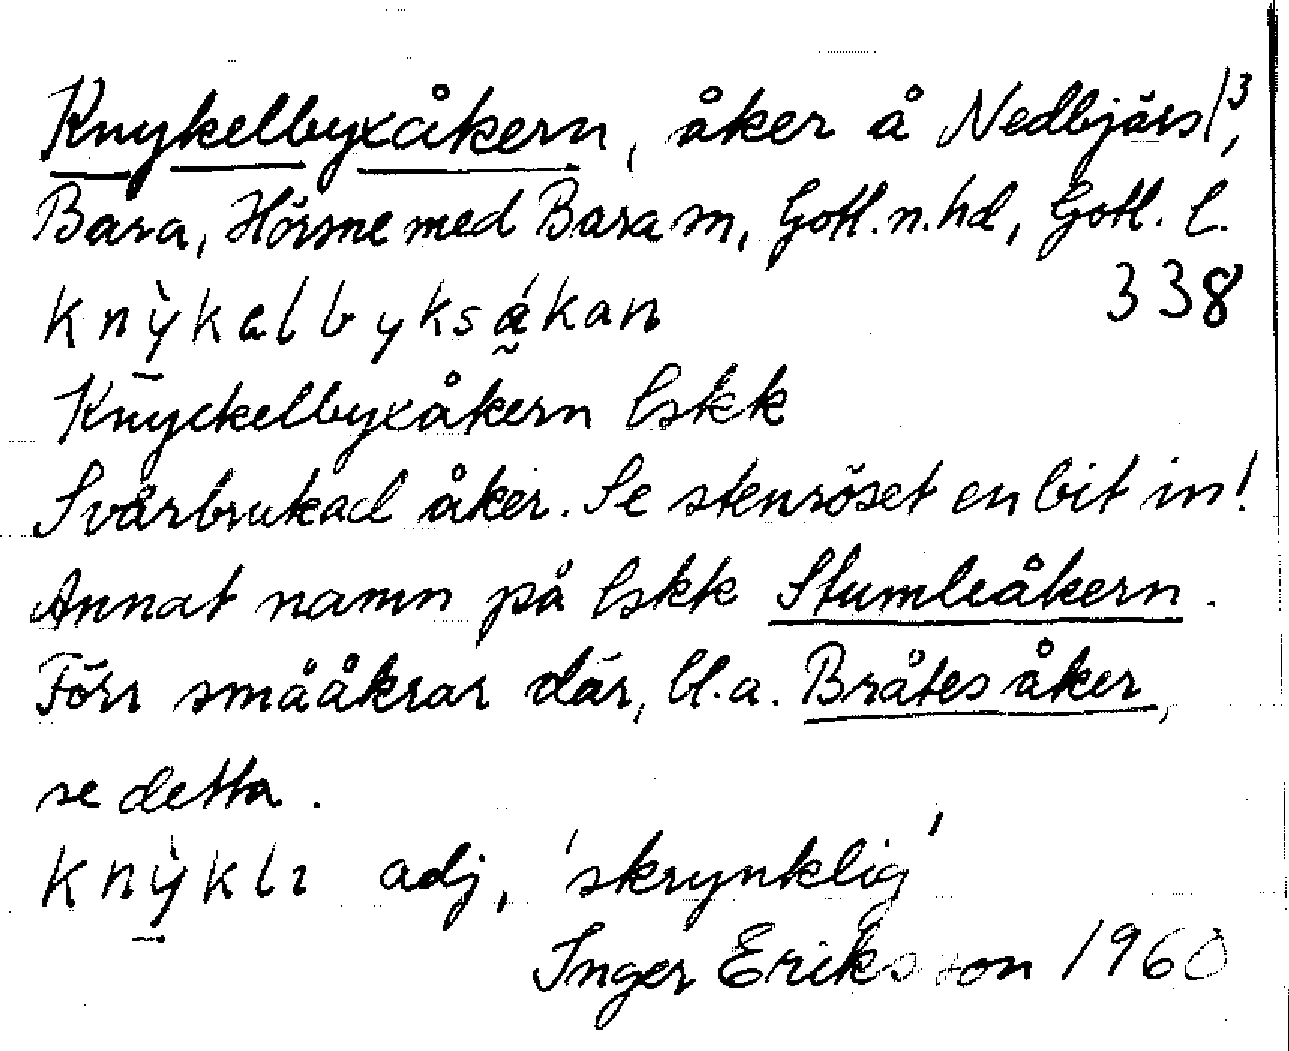 Knykelbyxåkern, åker å Nedbjärs 1³,
Bara, Hörsne med Bara sn, Gotl. n. hd, Gotl. l.
338
knỳkəlbyksákan
Knyckelbyxåkern
Svårbrukad åker. Se stenröset en bit in!
Annat namn på Stumleåkern.
Förr smååkrar där, bl.a. Bråtes åker,
se detta.
knỳklı adj, 'skrynklig'
Inger Eriksson 1960